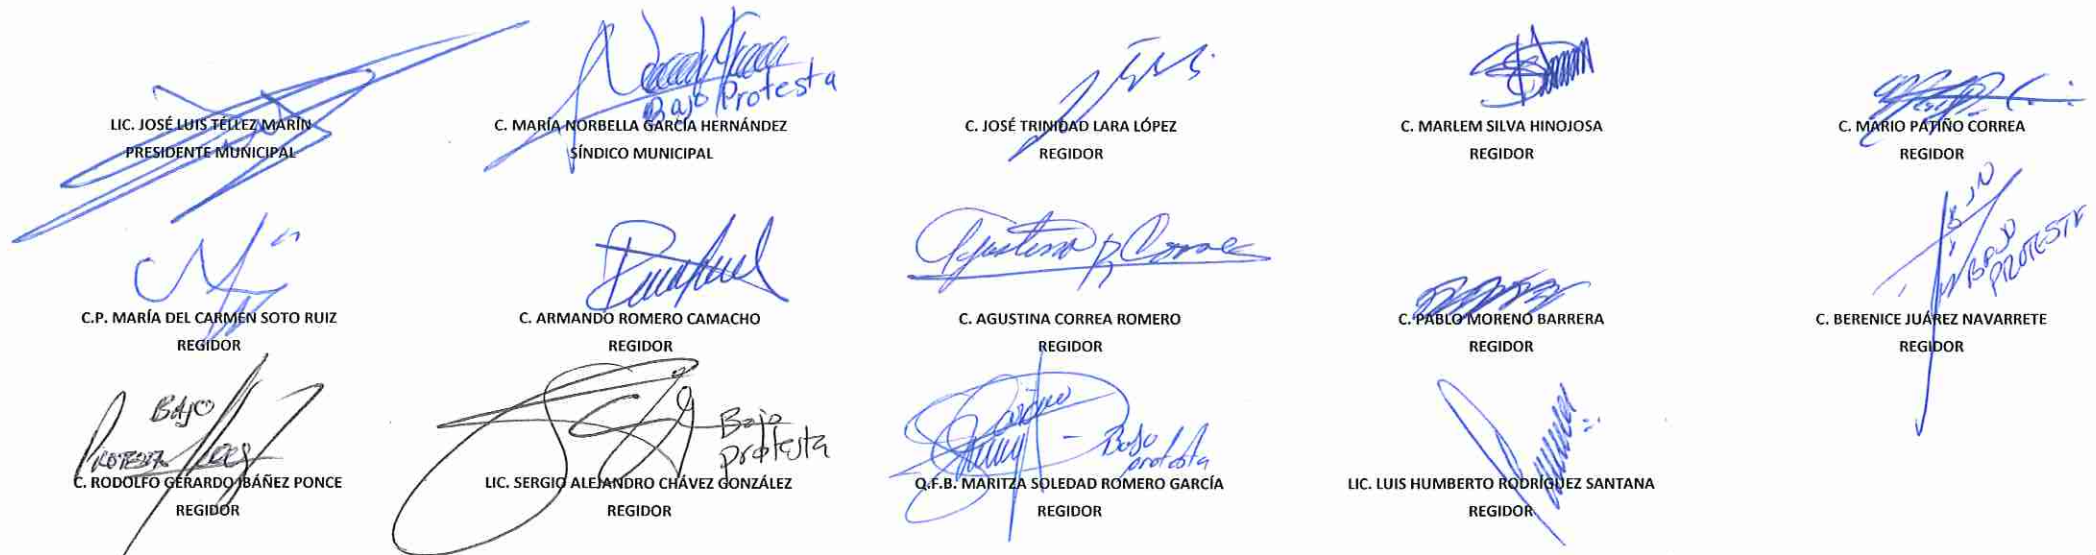 Bajo Protesta
LIC. JOSÉ LUIS TÉLLEZ MARÍN
PRESIDENTE MUNICIPAL
C. MARÍA NORBELLA GARCÍA HERNÁNDEZ
SÍNDICO MUNICIPAL
C. JOSÉ TRINIDAD LARA LÓPEZ
REGIDOR
C. MARLEM SILVA HINOJOSA
REGIDOR
C. MARIO PATIÑO CORREA
REGIDOR
Agustina R Correa
BAJO
PROTESTA
C.P. MARÍA DEL CARMEN SOTO RUIZ
REGIDOR
C. ARMANDO ROMERO CAMACHO
REGIDOR
C. AGUSTINA CORREA ROMERO
REGIDOR
C. PABLO MORENO BARRERA
REGIDOR
C. BERENICE JUÁREZ NAVARRETE
REGIDOR
BAJO
PROTESTA
Bajo
protesta
Bajo
protesta
C. RODOLFO GERARDO IBÁÑEZ PONCE
REGIDOR
LIC. SERGIO ALEJANDRO CHÁVEZ GONZÁLEZ
REGIDOR
Q.F.B. MARITZA SOLEDAD ROMERO GARCÍA
REGIDOR
LIC. LUIS HUMBERTO RODRÍGUEZ SANTANA
REGIDOR